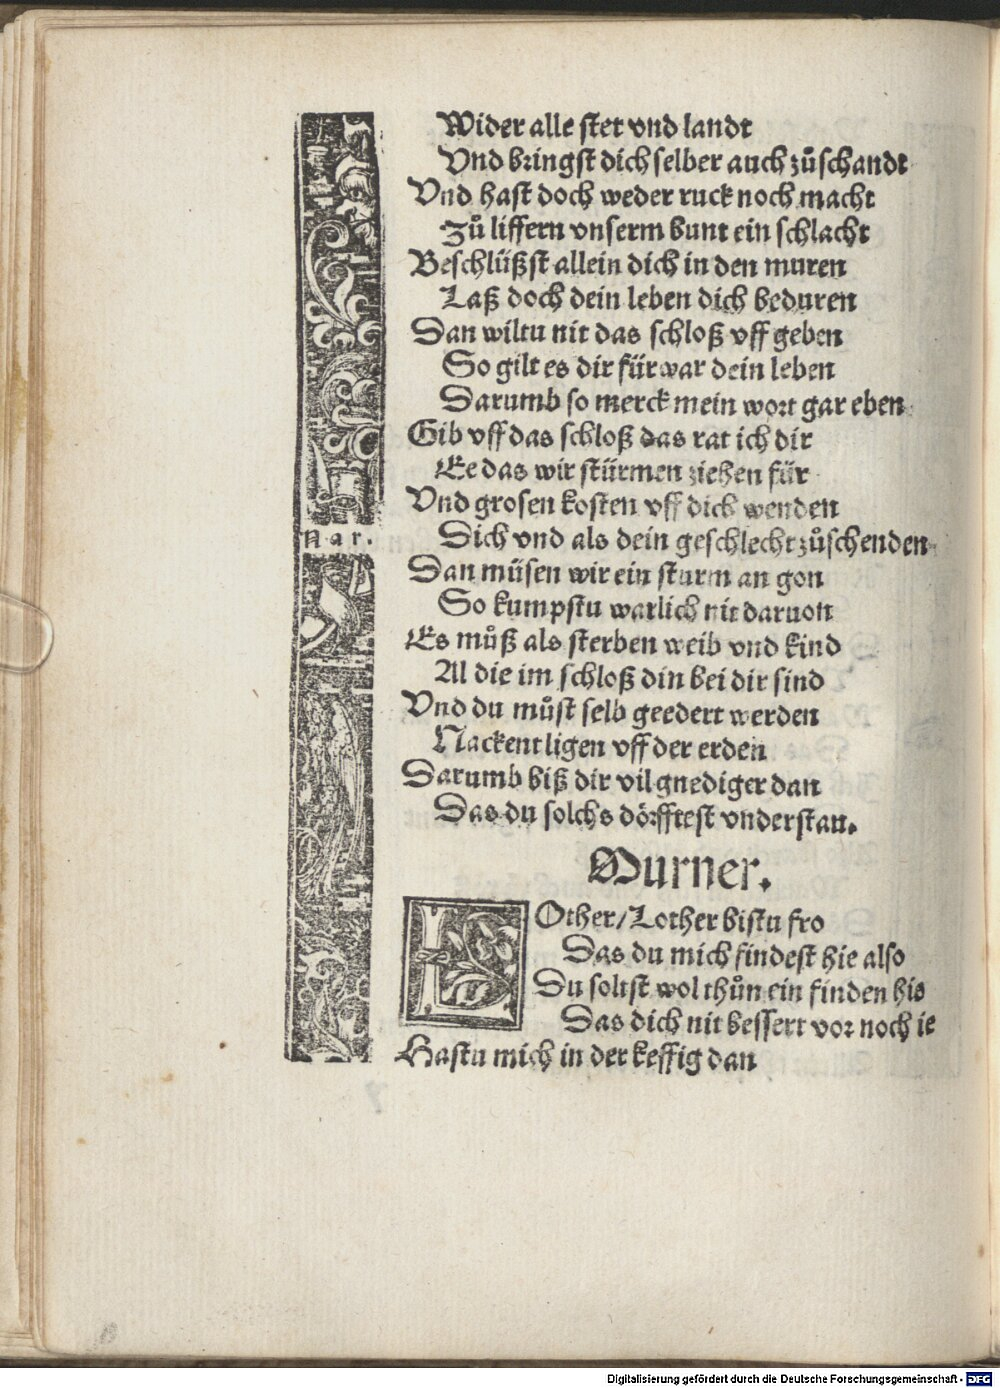 Wider alle stet vnd landt
Vnd bringst dich selber auch zůschandt
Vnd hast doch weder ruck noch macht
Zů liffern vnserm bunt ein schlacht
Beschlüßst allein dich in den muren
Laß doch dein leben dich beduren
Dan wiltu nit das schloß vff geben
So gilt es dir fürwar dein leben
Darumb so merck mein wort gar eben
Gib vff das schloß das rat ich dir
Ee das wir stürmen ziehen für
Vnd grosen kosten vff dich wenden
Nar.
Dich vnd als dein geschlecht zůschenden
Dan müsen wir ein sturm an gon
So kumpstu warlich nit daruon
Es můß als sterben weib vnd kind
Al die im schloß din bei dir sind
Vnd du můst selb geedert werden
Nackent ligen vff der erden
Darumb biß dir vil gnediger dan
Das du solchs dörfftest vnderstan.
Murner.
LOther/Lother bistu fro
Das du mich findest hie also
Du soltst wol thůn ein finden hie
Das dich nit bessert vor noch ie
Hastu mich in der keffig dan
Digitalisierung gefördert durch die Deutsche Forschungsgemeinschaft - DFG